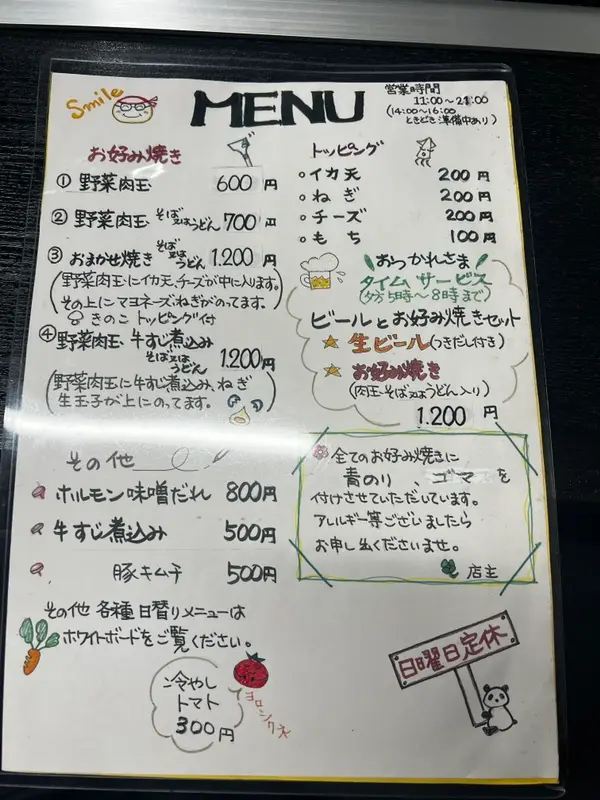 Smile
MENU
営業時間
11:00～21:00
(14:00～16:00
ときどき準備中あり)
お好み焼き
① 野菜肉玉 600円
② 野菜肉玉 そば又はうどん 700円
③ おまかせ焼き そば又はうどん 1,200円
(野菜肉玉にイカ天、チーズが中に入ります。
その上にマヨネーズねぎがのってます。)
きのこ トッピング付
④ 野菜肉玉 牛すじ煮込み
そば又はうどん 1,200円
(野菜肉玉に牛すじ煮込み、ねぎ
生玉子が上にのってます。)
トッピング
○イカ天 200円
○ねぎ 200円
○チーズ 200円
○もち 100円
おつかれさま
タイムサービス
(夕方5時～8時まで)
ビールとお好み焼きセット
★ 生ビール(つきだし付き)
★ お好み焼き
(肉玉・そば又はうどん入り)
1,200円
全てのお好み焼きに
青のり、ゴマを
付けさせていただいています。
アレルギー等ございましたら
お申し出くださいませ。
店主
その他
ホルモン味噌だれ 800円
牛すじ煮込み 500円
豚キムチ 500円
その他 各種日替りメニューは
ホワイトボードをご覧ください。
冷やし
トマト
300円
ヨロシクネ
日曜日定休